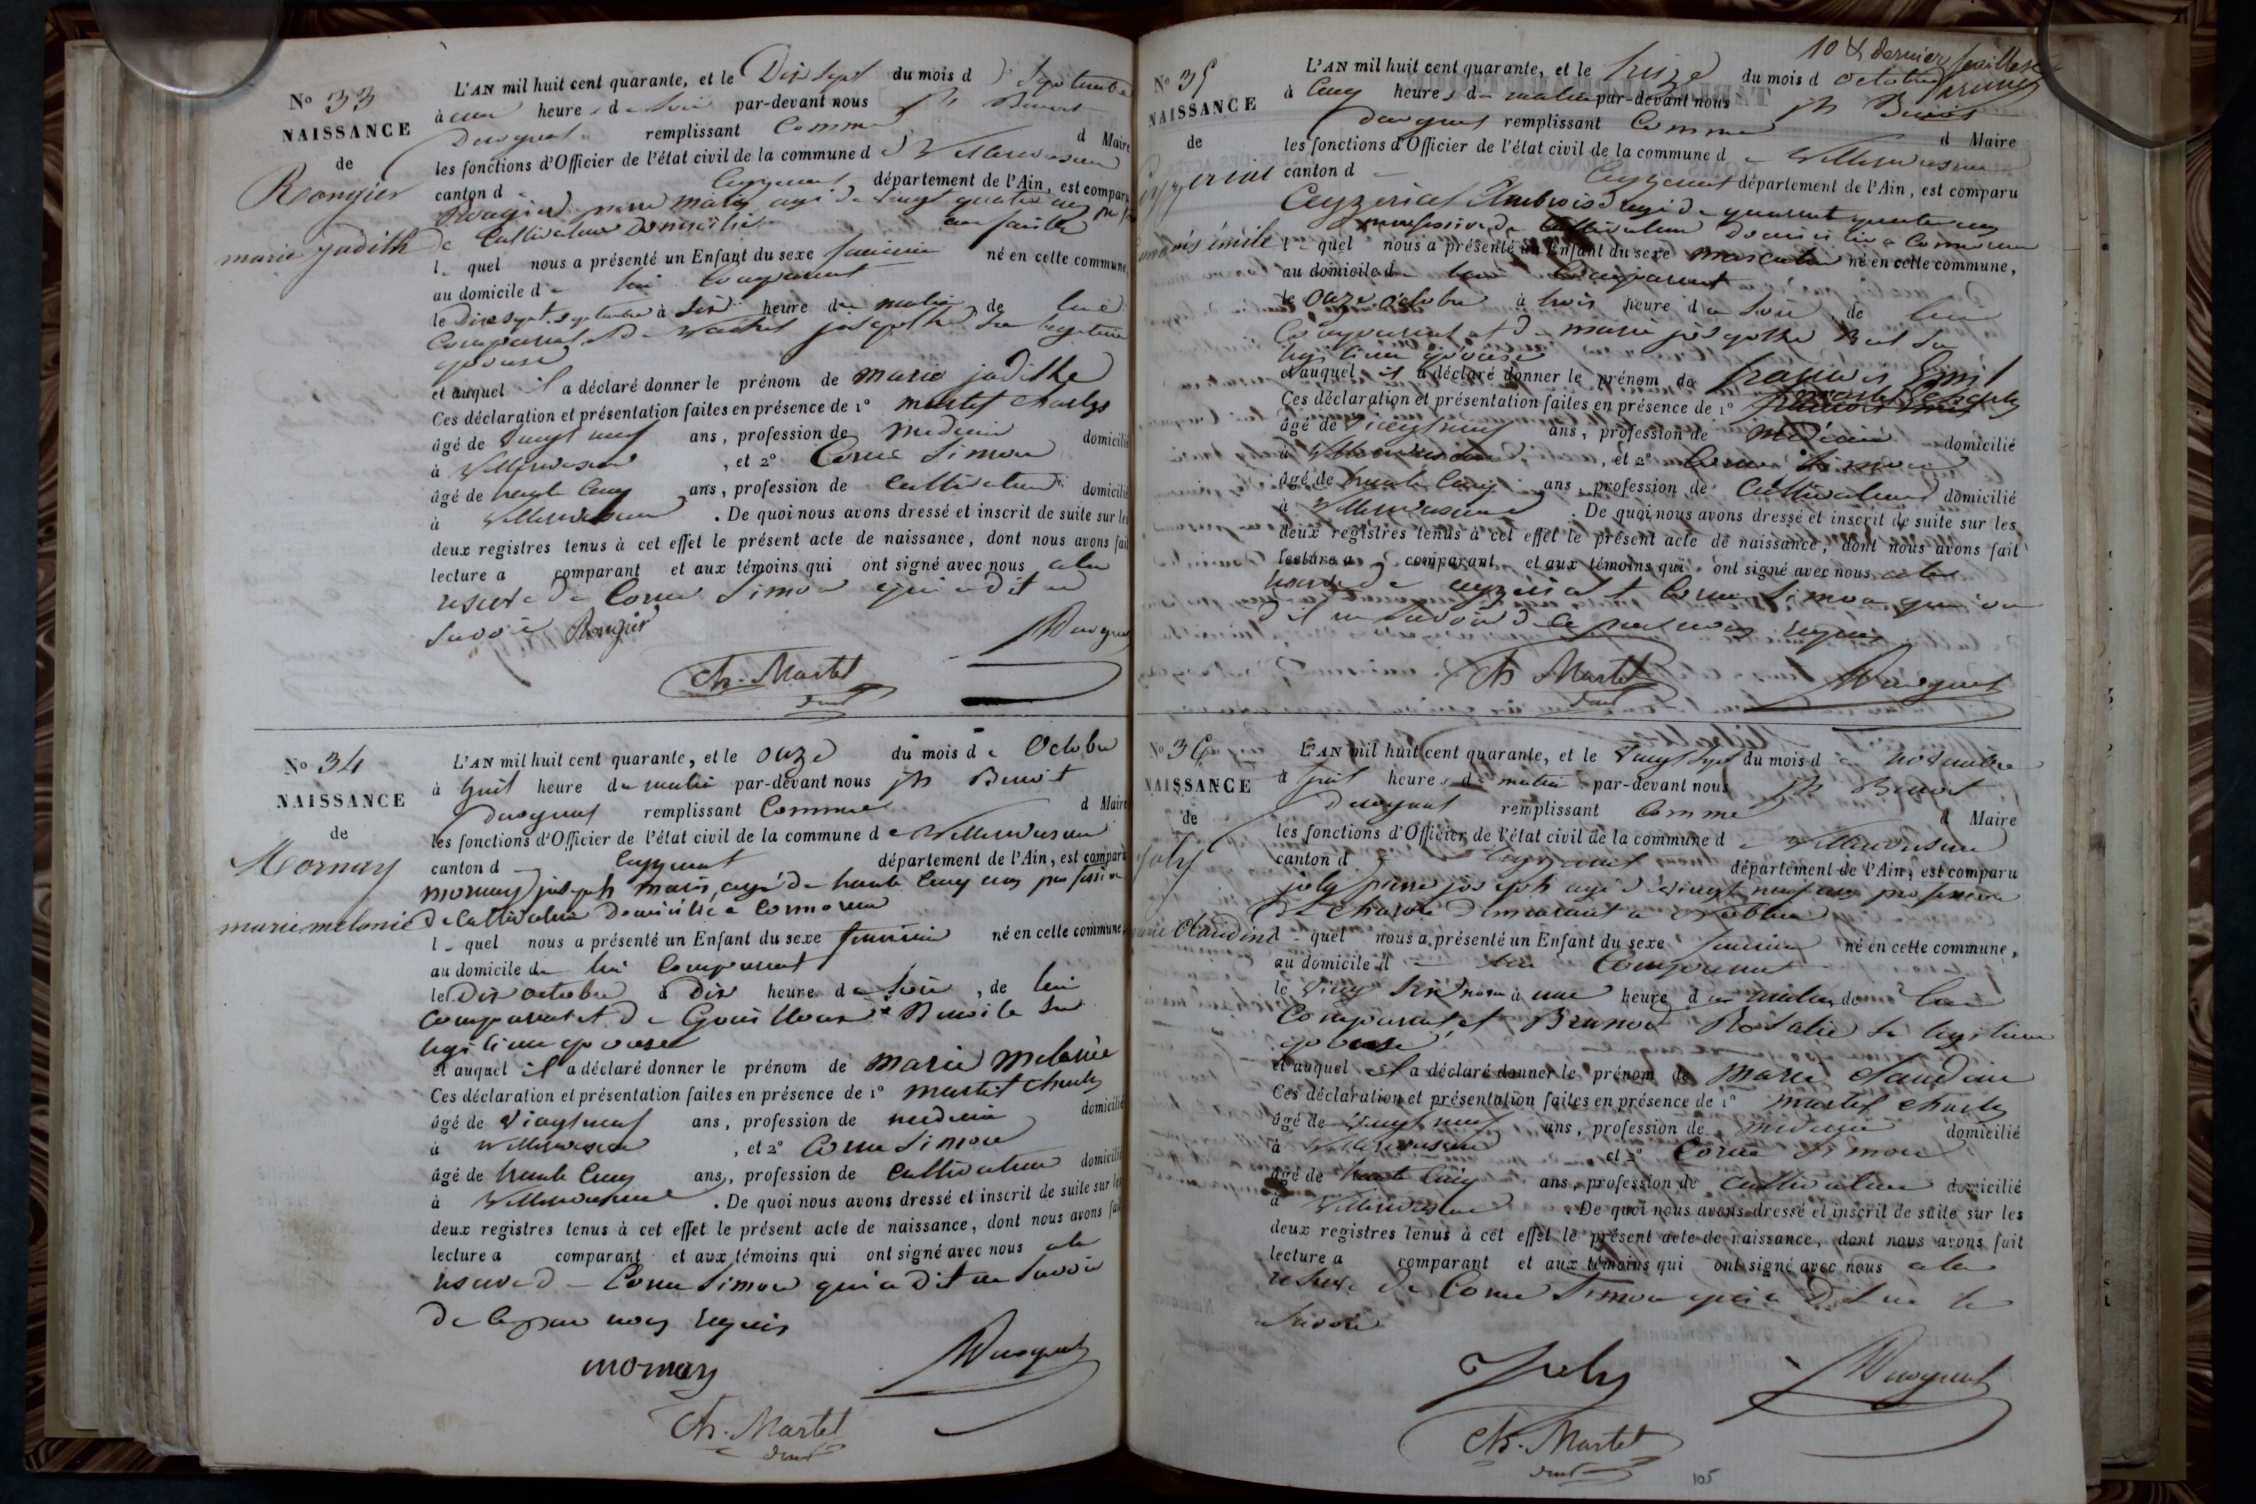 N° 33
NAISSANCE
de
Rongier
marie judith
L'AN mil huit cent quarante, et le Dix Sept du mois d Septembre
à une heure d soir par-devant nous Jh Benoit
Duvgnat remplissant Comme d Maire
les fonctions d'Officier de l'état civil de la commune d e Villereversure
canton d Ceyzeriat département de l'Ain, est comparu
Rongier agé de vingt quatre ans
de Cultivateur Domicilié
l quel nous a présenté un Enfant du sexe feminin né en cette commune,
au domicile d e lui Comparant
le Dix sept septembre à Six heure du matin de lui
Comparant et De josephte Sa legitime
epouse
et auquel il a déclaré donner le prénom de marie judithe
Ces déclaration et présentation faites en présence de 1° martet charles
âgé de vingt neuf ans, profession de medecin domicilié
à Villereversure, et 2° Cornu Simon
âgé de trente Cinq ans, profession de Cultivateur domicilié
à Villereversure. De quoi nous avons dressé et inscrit de suite sur les
deux registres tenus à cet effet le présent acte de naissance, dont nous avons fait
lecture a comparant et aux témoins qui ont signé avec nous a la
reserve de Cornu Simon qui a dit ne
Savoir Rongier
Ch. Martet
N° 34
NAISSANCE
de
Mornay
marie melanie
L'AN mil huit cent quarante, et le onze du mois d e Octobre
à huit heure du matin par-devant nous Jh Benoit
remplissant Comme d Maire
les fonctions d'Officier de l'état civil de la commune d e Villereversure
canton d Ceyzeriat département de l'Ain, est comparu
mornay joseph marie, agé de trente Cinq ans profession
de Cultivateur Domicilié a Cormoreau
l quel nous a présenté un Enfant du sexe feminin né en cette commune,
au domicile de lui Comparant
le Dix octobre à Dix heure du Soir, de lui
Comparant et De Benoite Sa
legitime epouse
et auquel il a déclaré donner le prénom de marie melanie
Ces déclaration et présentation faites en présence de 1° martet charles
âgé de vingt neuf ans, profession de medecin domicilié
à Villereversure, et 2° Cornu Simon
âgé de trente Cinq ans, profession de Cultivateur domicilié
à Villereversure. De quoi nous avons dressé et inscrit de suite sur les
deux registres tenus à cet effet le présent acte de naissance, dont nous avons fait
lecture a comparant et aux témoins qui ont signé avec nous a la
reserve d e Cornu Simon qui a dit ne Savoir
De ce par nous requis
mornay
Ch. Martet
10 & dernier feuillet
N° 35
NAISSANCE
de
émile
L'AN mil huit cent quarante, et le treize du mois d octobre
à Cinq heures du matin par-devant nous Jh Benoit
remplissant Comme d Maire
les fonctions d'Officier de l'état civil de la commune d e Villereversure
canton d Ceyzeriat département de l'Ain, est comparu
Ceyzeriat Ambroise agé de quarant quatre ans
profession de Cultivateur domicilié a Cormoreau
l quel nous a présenté un Enfant du sexe masculin né en cette commune,
au domicile de lui Comparant
le onze octobre à trois heure du Soir, de lui
Comparant et de marie josephte Sa
legitime epouse
et auquel il a déclaré donner le prénom de francois Emil
Ces déclaration et présentation faites en présence de 1° martet charles
âgé de vingt neuf ans, profession de medecin domicilié
à Villereversure, et 2° Cornu Simon
âgé de trente Cinq ans, profession de Cultivateur domicilié
à Villereversure. De quoi nous avons dressé et inscrit de suite sur les
deux registres tenus à cet effet le présent acte de naissance, dont nous avons fait
lecture a comparant et aux témoins qui ont signé avec nous a la
reserve de ceyzeriat et Cornu Simon qui on
dit ne savoir de ce par nous requis
Ch. Martet
N° 36
NAISSANCE
de
Joly
marie Claudine
L'AN mil huit cent quarante, et le vingt Sept du mois d e novembre
à huit heures du matin par-devant nous Jh Benoit
remplissant Comme d Maire
les fonctions d'Officier de l'état civil de la commune d e Villereversure
canton d Ceyzeriat département de l'Ain, est comparu
joly pierre joseph agé de vingt neuf ans profession
De Charon Demeurant a
l quel nous a présenté un Enfant du sexe feminin né en cette commune,
au domicile d e lui Comparant
le vingt Six nov à une heure du matin, de lui
Comparant, et Brunod Rosalie Sa legitime
epouse
et auquel il a déclaré donner le prénom de marie claudine
Ces déclaration et présentation faites en présence de 1° martet charles
âgé de vingt neuf ans, profession de medecin domicilié
à Villereversure et 2° Cornu Simon
âgé de trente Cinq ans, profession de Cultivateur domicilié
à Villereversure. De quoi nous avons dressé et inscrit de suite sur les
deux registres tenus à cet effet le présent acte de naissance, dont nous avons fait
lecture a comparant et aux témoins qui ont signé avec nous a la
reserve De Cornu Simon qui a Dit ne le
Savoir
Joly
Ch. Martet
105